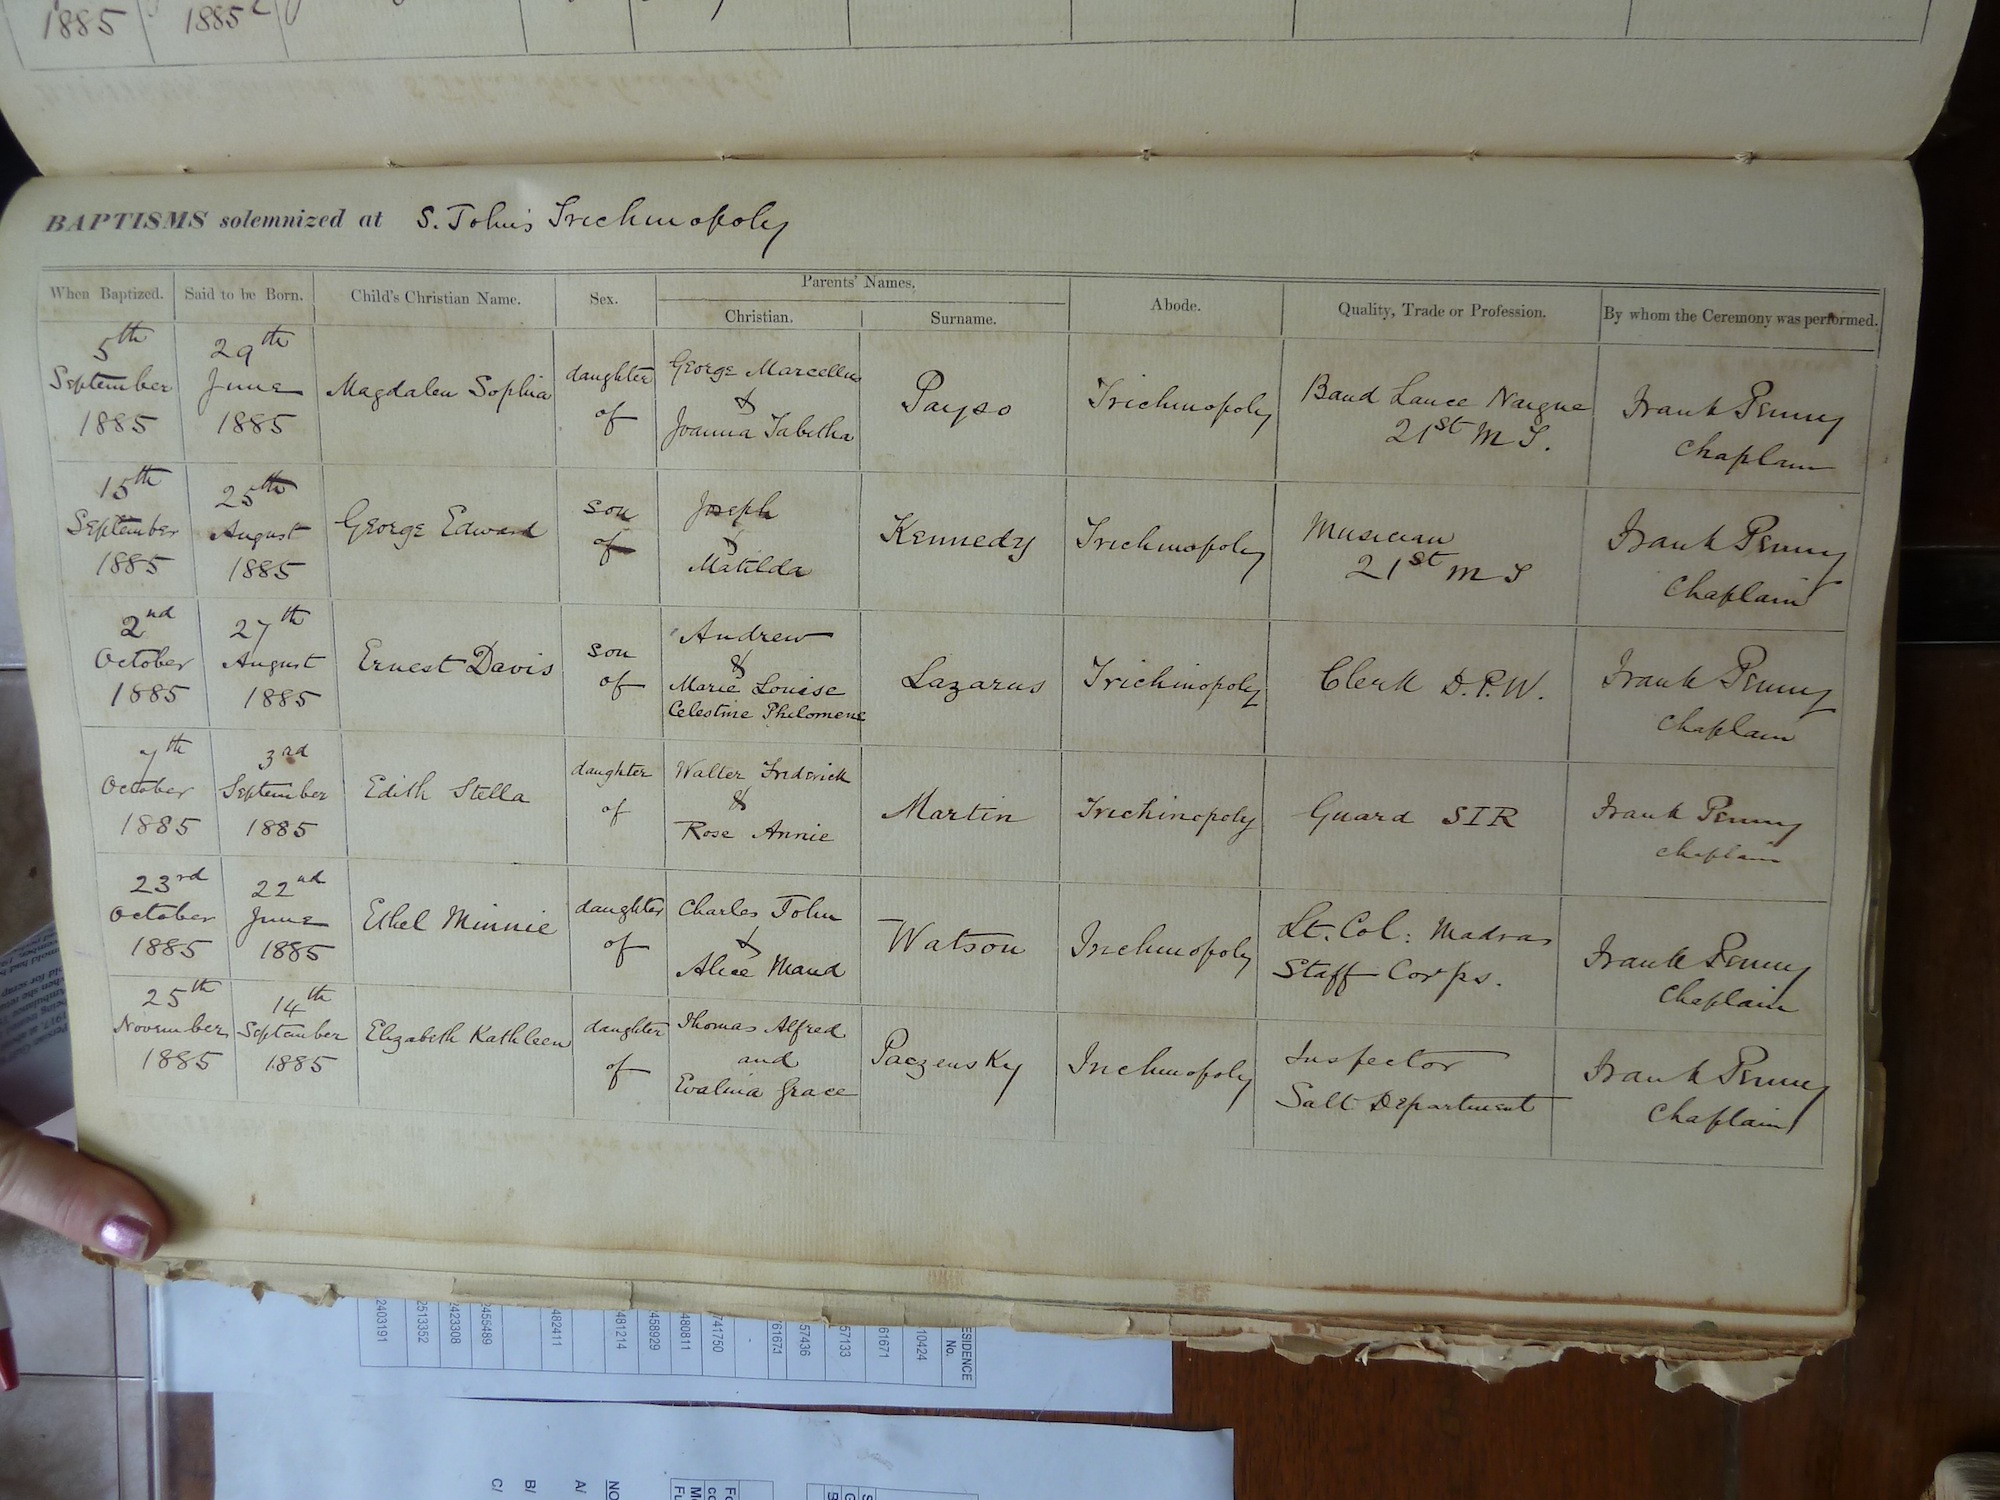 1885 1885
BAPTISMS solemnized at S. John's Trichinopoly
When Baptized. Said to be Born. Child's Christian Name. Sex. Parents' Names, Abode. Quality, Trade or Profession. By whom the Ceremony was performed.
Christian. Surname.
5th September 1885 29th June 1885 Magdalen Sophia daughter of George Marcellus & Joanna Tabitha Payso Trichinopoly Band Lance Naigue 21st M I. Frank Penny Chaplain
15th September 1885 25th August 1885 George Edward son of Joseph & Matilda Kennedy Trichinopoly Musician 21st M I Frank Penny Chaplain
2nd October 1885 27th August 1885 Ernest Davis son of Andrew & Marie Louise Celestine Philomene Lazarus Trichinopoly Clerk D.P.W. Frank Penny Chaplain
7th October 1885 3rd September 1885 Edith Stella daughter of Walter Frederick & Rose Annie Martin Trichinopoly Guard SIR Frank Penny Chaplain
23rd October 1885 22nd June 1885 Ethel Minnie daughter of Charles John & Alice Maud Watson Trichinopoly Lt. Col: Madras Staff Corps. Frank Penny Chaplain
25th November 1885 14th September 1885 Elizabeth Kathleen daughter of Thomas Alfred and Evalina Grace Paczensky Trichinopoly Inspector Salt Department Frank Penny Chaplain
ESIDENCE
No.
10424
61671
57133
57436
761671
-
741750
480811
458929
481214
482411
2455489
2423308
2513352
2403191
NO
A/
B/
C/